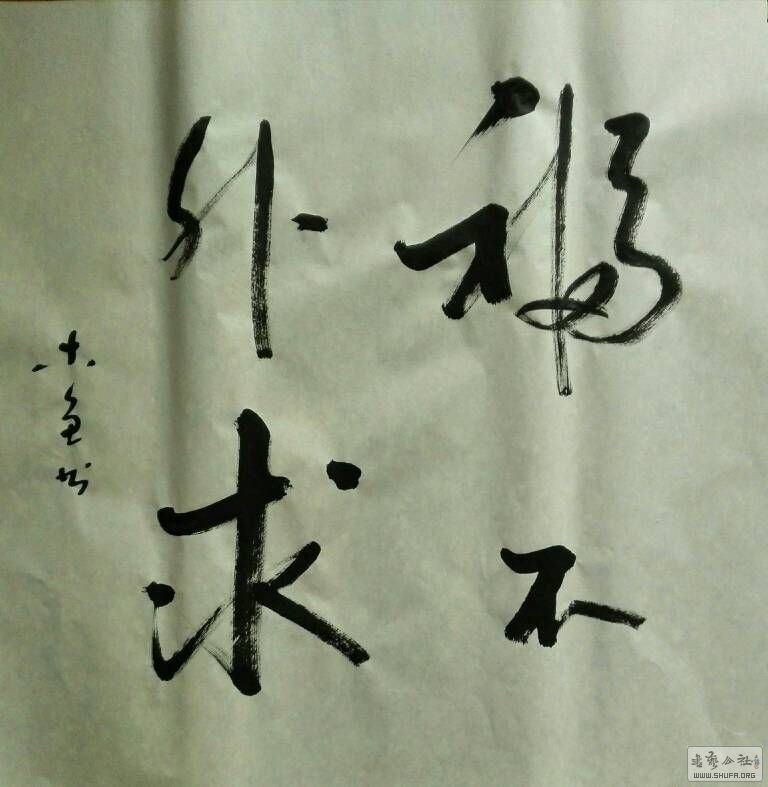 福不
外求
书艺公社
WWW.SHUFA.ORG